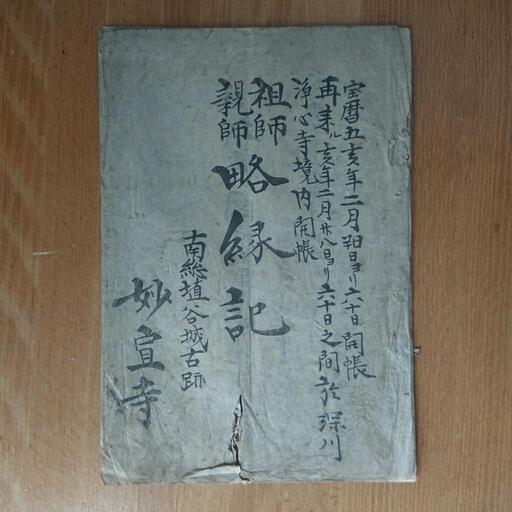 宝暦五亥年二月朔日ヨリ六十日開帳
再来ル亥年二月廿八日ヨリ六十日之間於深川
浄心寺境内開帳
祖師
親師
略縁記
南総埴谷城古跡
妙宣寺